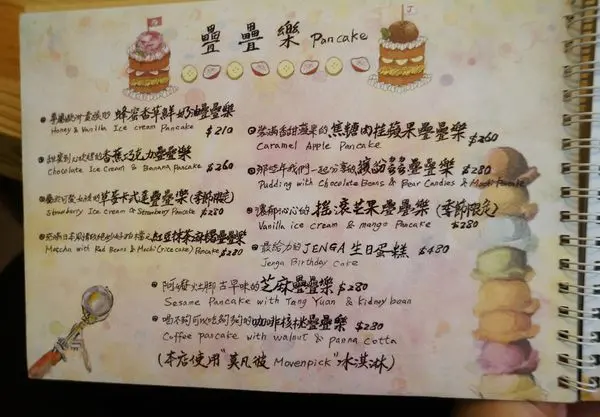 疊疊樂 Pancake
J
專屬歐洲貴族的 蜂蜜香草鮮奶油疊疊樂
Honey & Vanilla Ice cream Pancake $210
甜蜜到心坎裡的香蕉巧克力疊疊樂
Chocolate Ice Cream & Banana Pancake $260
草莓卡式達疊疊樂(季節限定)
Strawberry Ice Cream & Strawberry Pancake $280
紅豆抹茶麻糬疊疊樂
Matcha with Red Beans & Mochi (rice cake) Pancake $280
裝滿香甜蘋果的焦糖肉桂蘋果疊疊樂
Caramel Apple Pancake $260
那些年我們一起分享的繽紛多多疊疊樂 $280
Pudding with Chocolate Beans & Bear Candies & Mochi Pancake
濃郁沁心的搖滾芒果疊疊樂(季節限定)
Vanilla ice cream & mango Pancake $280
最給力的JENGA生日蛋糕 $480
Jenga Birthday Cake
阿嬤灶腳古早味的芝麻疊疊樂 $280
Sesame Pancake with Tang Yuan & Kidney bean
喝不夠可以吃到夠的咖啡核桃疊疊樂 $280
Coffee pancake with walnut & panna cotta
(本店使用"莫凡彼 Movenpick"冰淇淋)